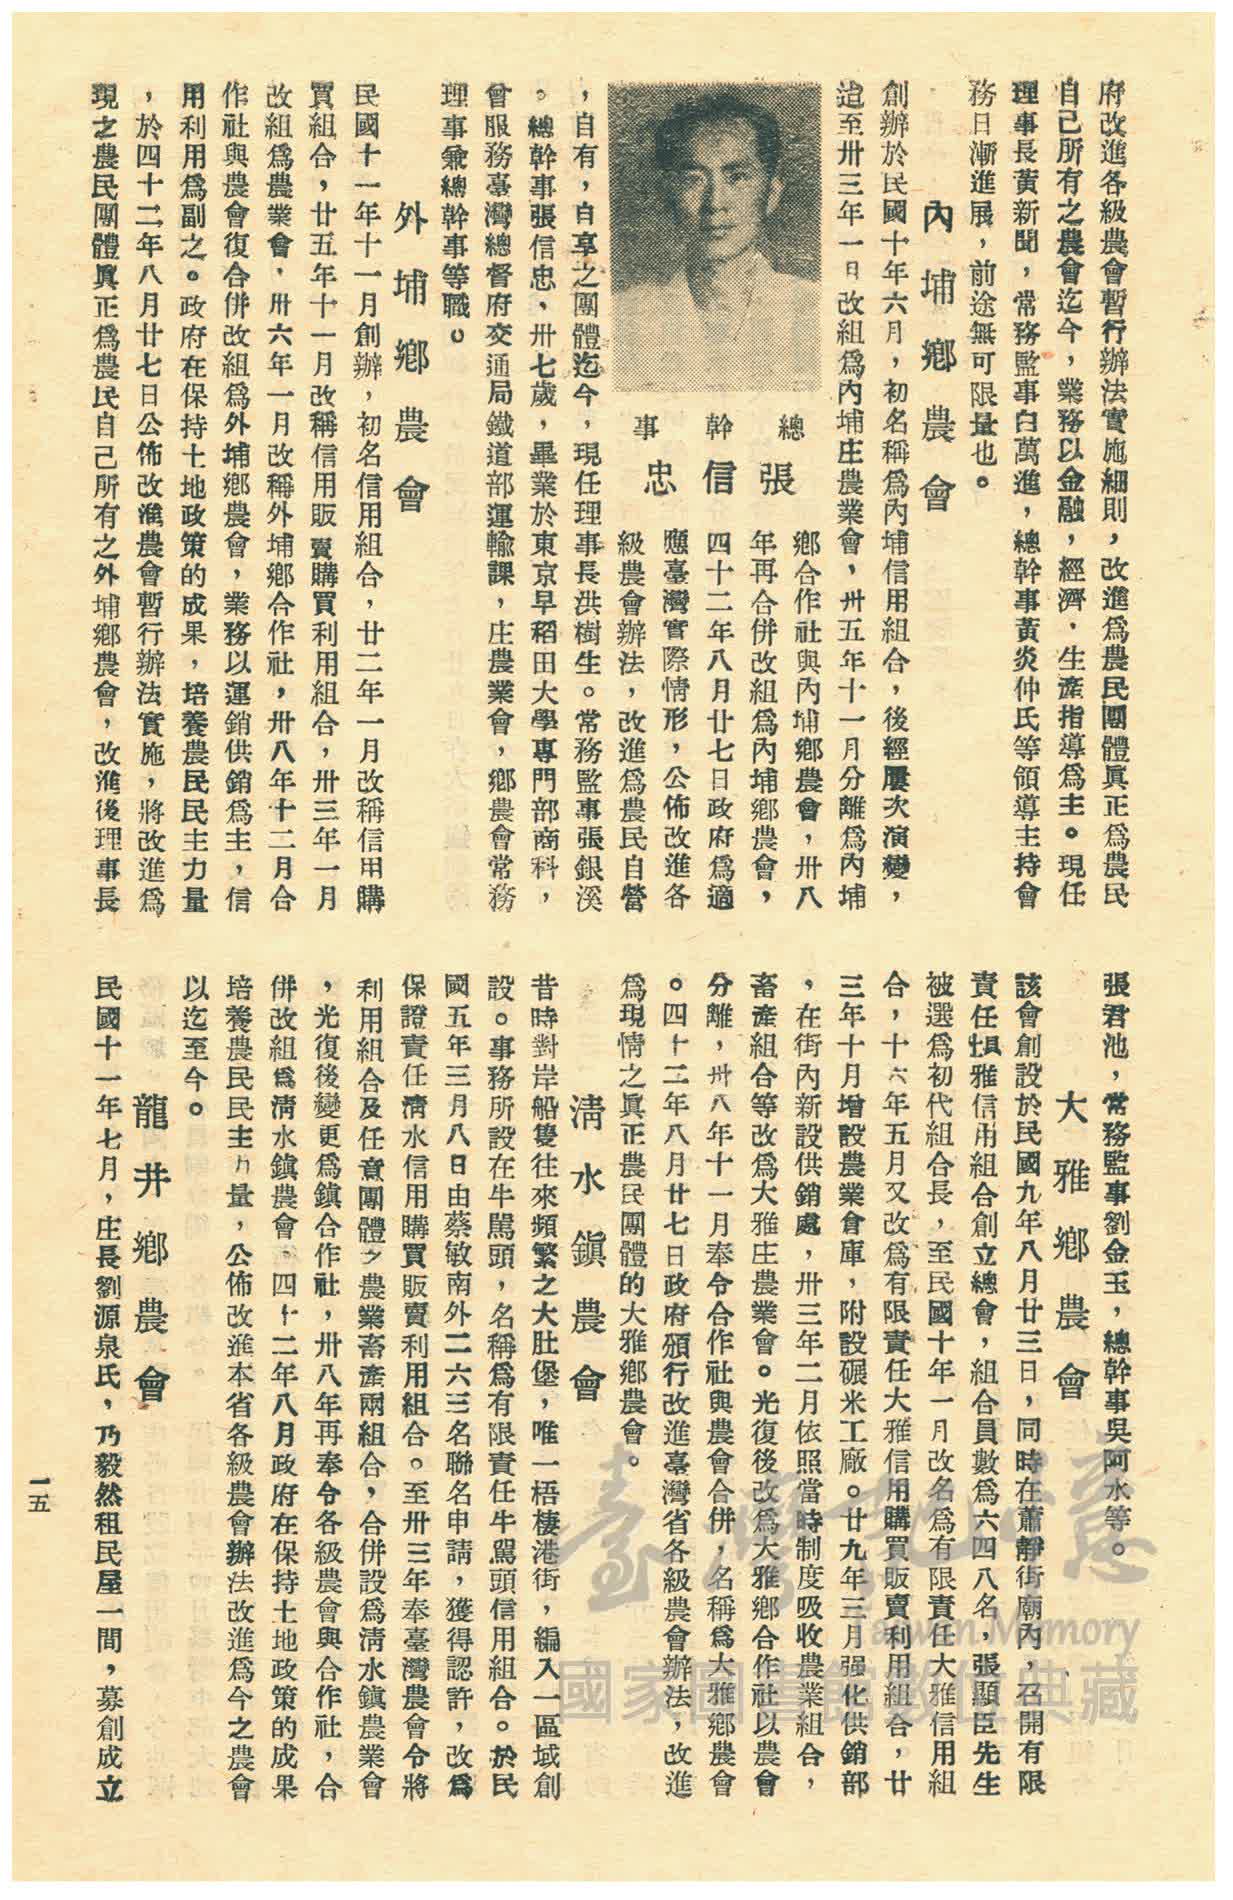 府改進各級農會暫行辦法實施細則，改進爲農民團體眞正爲農民
自己所有之農會迄今，業務以金融，經濟，生產指導爲主。現任
理事長黃新聞，常務監事白萬進，總幹事黃炎仲氏等領導主持會
務日漸進展，前途無可限量也。
內埔鄉農會
創辦於民國十年六月，初名稱爲內埔信用組合，後經屢次演變，
迨至卅三年一日改組爲內埔庄農業會，卅五年十一月分離爲內埔
鄉合作社與內埔鄉農會，卅八
年再合併改組爲內埔鄉農會，
四十二年八月廿七日政府爲適
應臺灣實際情形，公佈改進各
級農會辦法，改進爲農民自營
總幹事
張信忠
，自有，自享之團體迄今，現任理事長洪樹生。常務監事張銀溪
。總幹事張信忠、卅七歲，畢業於東京早稻田大學專門部商科，
曾服務臺灣總督府交通局鐵道部運輸課，庄農業會，鄉農會常務
理事兼總幹事等職。
外埔鄉農會
民國十一年十一月創辦，初名信用組合，廿二年一月改稱信用購
買組合，廿五年十一月改稱信用販賣購買利用組合，卅三年一月
改組爲農業會，卅六年一月改稱外埔鄉合作社，卅八年十二月合
作社與農會復合併改組爲外埔鄉農會，業務以運銷供銷爲主，信
用利用爲副之。政府在保持土地政策的成果，培養農民民主力量
，於四十二年八月廿七日公佈改進農會暫行辦法實施，將改進爲
現之農民團體眞正爲農民自己所有之外埔鄉農會，改進後理事長
張君池，常務監事劉金玉，總幹事吳阿水等。
大雅鄉農會
該會創設於民國九年八月廿三日，同時在蕭靜街廟內，召開有限
責任惧雅信用組合創立總會，組合員數爲六四八名，張顯臣先生
被選爲初代組合長，至民國十年一月改名爲有限責任大雅信用組
合，十六年五月又改爲有限責任大雅信用購買販賣利用組合，廿
三年十月增設農業倉庫，附設碾米工廠。廿九年三月强化供銷部
，在街內新設供銷處，卅三年二月依照當時制度吸收農業組合，
畜產組合等改爲大雅庄農業會。光復後改爲大雅鄉合作社以農會
分離，卅八年十一月奉令合作社與農會合併，名稱爲大雅鄉農會
。四十二年八月廿七日政府頒行改進臺灣省各級農會辦法，改進
爲現情之眞正農民團體的大雅鄉農會。
淸水鎭農會
昔時對岸船隻往來頻繁之大肚堡，唯一梧棲港街，編入一區域創
設。事務所設在牛罵頭，名稱爲有限責任牛罵頭信用組合。於民
國五年三月八日由蔡敏南外二六三名聯名申請，獲得認許，改爲
保證責任淸水信用購買販賣利用組合。至卅三年奉臺灣農會令將
利用組合及任意團體之農業畜產兩組合，合併設爲淸水鎭農業會
，光復後變更爲鎭合作社，卅八年再奉令各級農會與合作社，合
併改組爲淸水鎭農會，四十二年八月政府在保持土地政策的成果
培養農民民主力量，公佈改進本省各級農會辦法改進爲今之農會
以迄至今。
龍井鄉農會
民國十一年七月，庄長劉源泉氏，乃毅然租民屋一間，募創成立
一五
臺灣記憶
Taiwan Memory
國家圖書館數位典藏